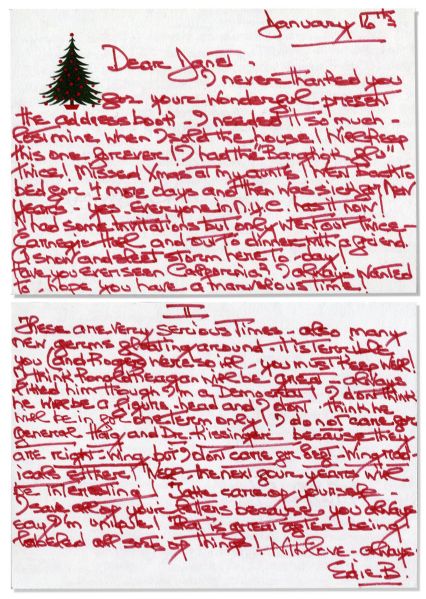 January 16th
Dear Janet -
I never thanked you
for your wonderful present
the address book - I needed it so much -
lost mine when I sold the house! I'll keep
this one forever! I had the "Bangkok flu"
twice! Missed Xmas at my aunts! Went back to
bed for 4 more days and then was sick at New
Years - yes everyone in N.Y.C. has it now!
I had some invitations but only went out twice -
Carnegie Hall and out to dinner with a friend.
A snow and sleet storm here to-day!
Have you ever seen California? I always wanted
to, hope you have a marvelous time!
II
These are very serious times - also many
new germs floating around it is terrible
you (and Roger) were so ill - you must keep well!
I think Ronald Reagan will be great - always
liked him though I'm a Democrat! I don't think
he will be a figure head and I don't think he
will be in for one term only! I do not care for
General Haig and H. Kissinger because they
are right-wing but I don't care for left-wing rad-
icals either! Well - the next four years will
be interesting! Take care of yourself -
I save all of your letters because - you always
say I'm unique! That is great after being
labeled all sorts of things! With love - always -
Edie B.